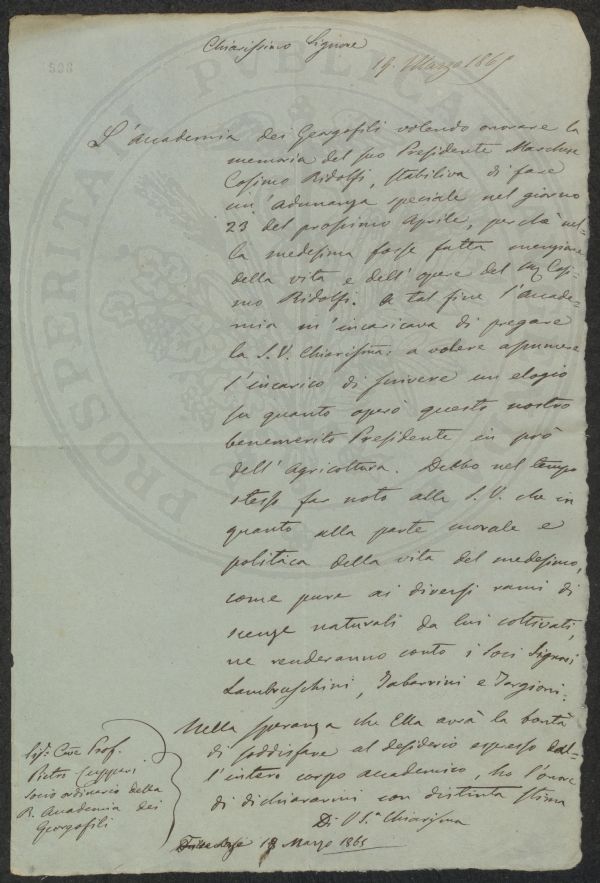 Chiarissimo Signore
19. Marzo 1865
L'Accademia dei Georgofili volendo onorare la
memoria del suo Presidente Marchese
Cosimo Ridolfi, stabiliva di fare
un'adunanza speciale nel giorno
23 del prossimo Aprile, perchè nel=
la medesima fosse fatta menzione
della vita e dell'opere del Cosi=
mo Ridolfi. A tal fine l'Accade=
mia m'incaricava di pregare
la S.V. Chiarisma: a volere assumere
l'incarico di scrivere un elogio
su quanto operò questo nostro
benemerito Presidente in prò
dell'agricoltura. Debbo nel tempo
stesso far noto alla S.V. che in
quanto alla parte morale e
politica della vita del medesimo,
come pure ai diversi rami di
scienze naturali da lui coltivati,
ne renderanno conto i Soci Signori
Lambruschini, Tabarrini e Targioni.
Nella speranza che Ella avrà la bontà
di soddisfare al desiderio espresso dal=
l'intero corpo accademico, ho l'onore
di dichiararmi con distinta stima
Di V.S.a Chiarisma
18 Marzo 1865
Sig: Cave Prof.
Pietro Cuppari
socio ordinario della
R. Accademia dei
Georgofili
PROSPERITATI PVBLICAE